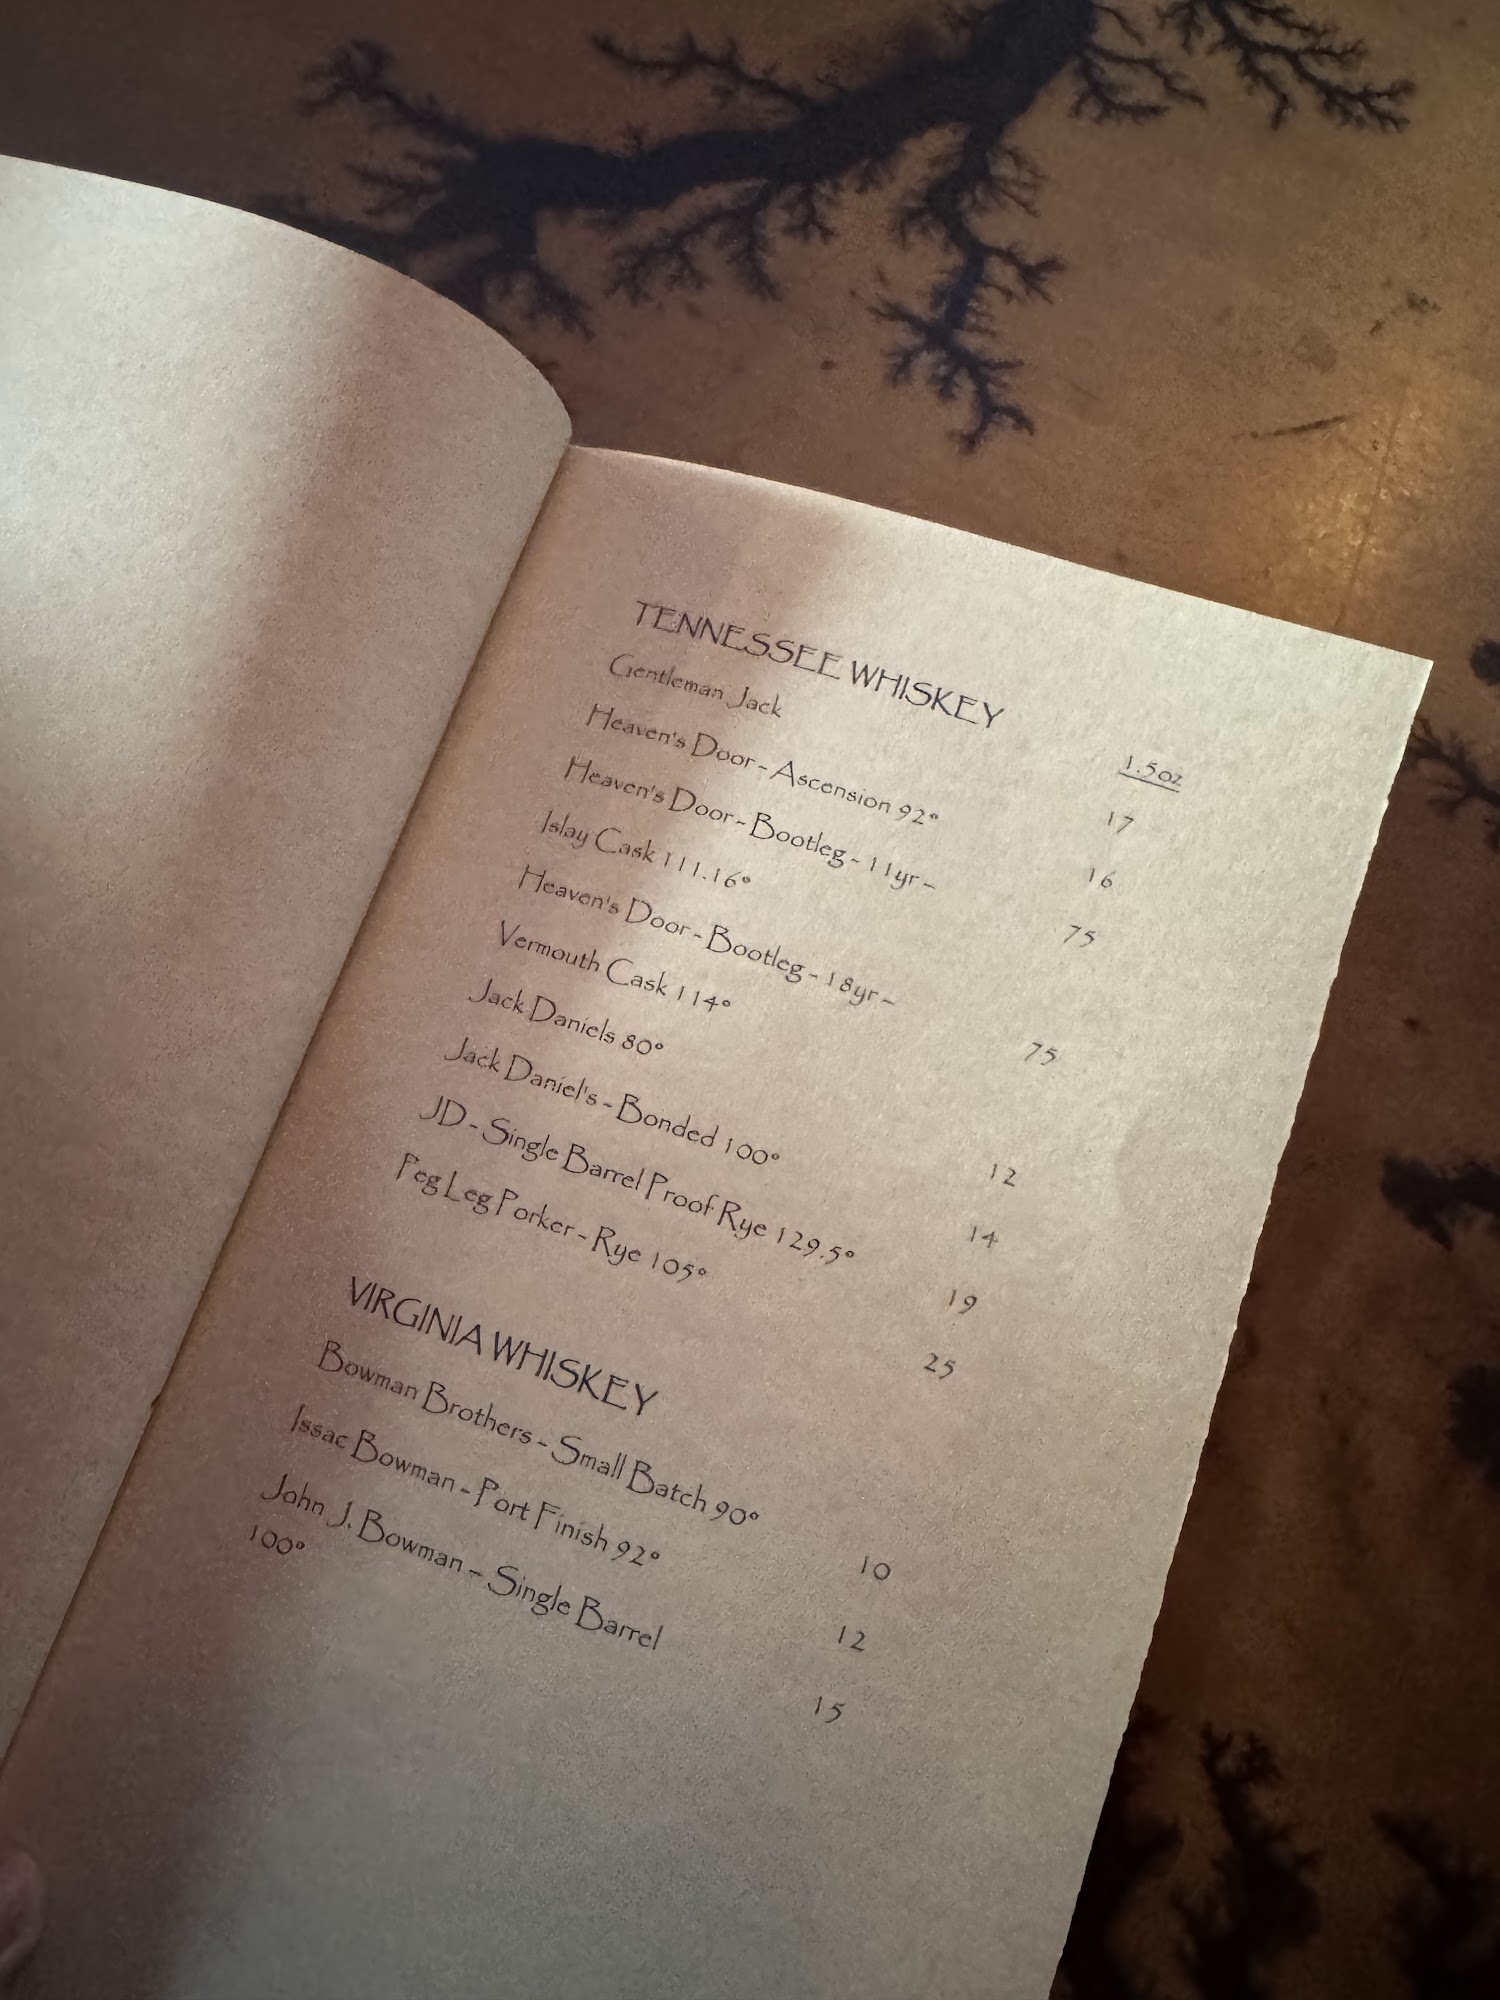 TENNESSEE WHISKEY 1.5oz
Gentleman Jack 17
Heaven's Door - Ascension 92° 16
Heaven's Door - Bootleg - 11yr - 75
Islay Cask 111.16°
Heaven's Door - Bootleg - 18yr - 75
Vermouth Cask 114°
Jack Daniels 80° 12
Jack Daniel's - Bonded 100° 14
JD - Single Barrel Proof Rye 129.5° 19
Peg Leg Porker - Rye 105° 25
VIRGINIA WHISKEY
Bowman Brothers - Small Batch 90° 10
Issac Bowman - Port Finish 92° 12
John J. Bowman - Single Barrel 15
100°